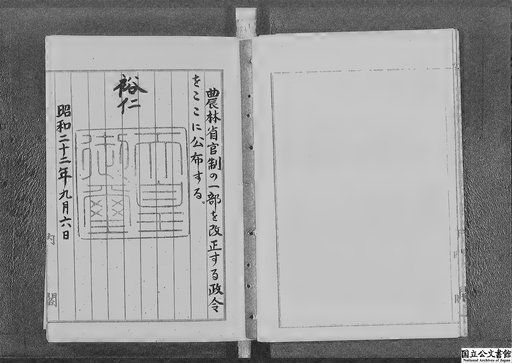 農林省官制の一部を改正する政令
をここに公布する。
裕仁
天皇
御璽
昭和二十二年九月六日
内閣
国立公文書館
National Archives of Japan